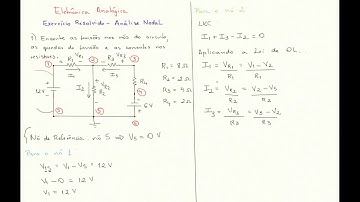 Eletrônica Analógica
Exercício Resolvido - Análise Nodal
1) Encontre as tensões nos nós do circuito,
as quedas de tensão e as correntes nos
resistores.
VR1
VR3
1
2
3
R1
I1
R3
I3
12V
I2
R2
VR2
R4
4
6V
5
5
R1 = 8 Ω
R2 = 2 Ω
R3 = 4 Ω
R4 = 2 Ω
Nó de Referência nó 5 ⇒ V5 = 0 V
Para o nó 1
V15 = V1 - V5 = 12 V
V1 - 0 = 12 V
V1 = 12 V
Para o nó 2
LKC
I1 + I3 - I2 = 0
Aplicando a Lei de OL.
I1 = VR1/R1 = V1 - V2/R1
I2 = VR2/R2 = V2 - V5/R2
I3 = VR3/R3 = V3 - V2/R3